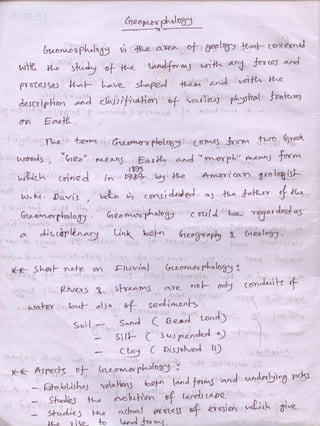 Geomorphology
Geomorphology is the area of geology that concerned
with the study of the landforms with any forces and
processes that have shaped them and with the
description and classification of various physical features
on Earth.
The term Geomorphology comes from two Greek
words, "Geo" means Earth and "morph" means form
1899
which coined in by the American geologist
W.M. Davis, who is considedted as the father of the
Geomorphology. Geomorphology could be regarded as
a disciplenary link betn Geography & Geology.
** Short note on Fluvial Geomorphology :
Rivers & streams are not only conduits if
water but also of sediments.
Soil - Sand ( Bead Load)
- Silt ( Suspended ")
- Clay ( Dissolved 11)
** Aspects of Geomorphology :
- Establishes relations betn land forms and underlying rocks.
- Studies the evolution of landscape
- Studies the actual process of erosion which give
the rise to land forms.